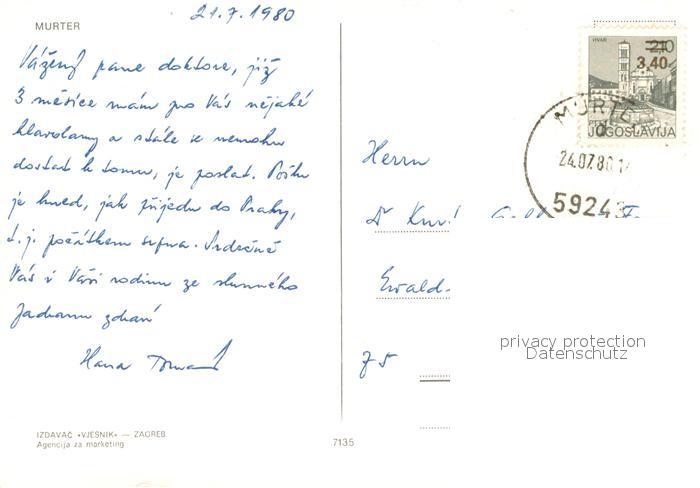 21.7.1980
MURTER
Vážený pane doktore, již
3 měsíce mám pro Vás nějaké
hlavolamy a stále se nemohu
dostat k tomu, je poslat. Pošlu
je hned, jak přijedu do Prahy,
t.j. počátkem srpna. Srdečně
Vás i Vaši rodinu ze slunného
Jadranu zdraví
Hana
IZDAVAČ «VJESNIK» — ZAGREB
Agencija za marketing
7135
HVAR
2,10
3,40
JUGOSLAVIJA
MURTE
24.07.80
59243
Herrn
Dr
Ewald-
75
privacy protection
Datenschutz